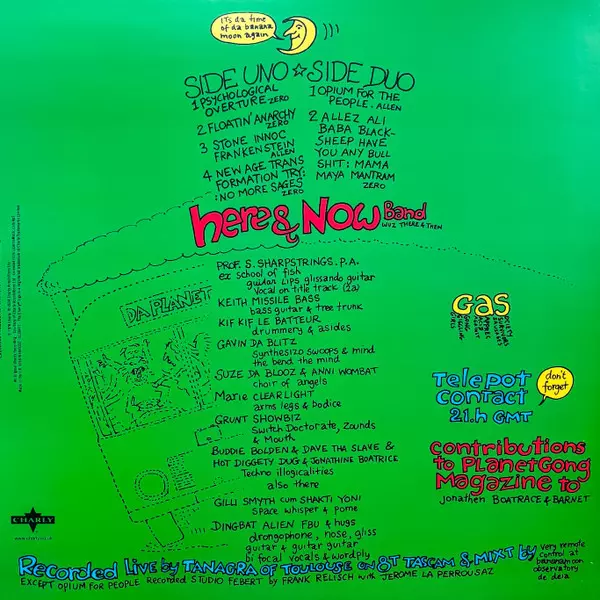 iTs da time
of da banana
moon again
SIDE UNO ☆ SIDE DUO
1 PSYCHOLOGICAL
OVERTURE ZERO
2 FLOATIN' ANARCHY
ZERO
3 STONE INNOC
FRANKENSTEIN
ALLEN
4 NEW AGE TRANS
FORMATION TRY:
:NO MORE SAGES
ZERO
1 OPIUM FOR THE
PEOPLE. ALLEN
2 ALLEZ ALI
BABA BLACK-
SHEEP HAVE
YOU ANY BULL
SHIT: MAMA
MAYA MANTRAM
ZERO
here & Now Band
WUZ THERE & THEN
DA PLANET
PROF. S. SHARPSTRINGS. P.A.
ex school of fish
guitar LIPS glissando guitar
Vocal on title track (2a)
KEITH MISSILE BASS
bass guitar & tree trunk
KIF KIF LE BATTEUR
drummery & asides
GAVIN DA BLITZ
Synthesizo swoops & mind
the bend the mind
SUZE DA BLOOZ & ANNI WOMBAT
choir of angels
Marie CLEARLIGHT
arms legs & bodice
GRUNT SHOWBIZ
Switch Doctorate, Zounds
& Mouth
BUDDIE BOLDEN & DAVE THA SLAVE &
HOT DIGGETY DUG & JONATHINE BOATRICE
Techno illogicalities
also there
GILLI SMYTH cum SHAKTI YONI
Space whisper & pome
DINGBAT ALIEN FBU & hugs
drongophone, nose, gliss
guitar & guitar guitar
bi focal vocals & wordply
GAS
TELEPOT
CONTACT
21.h GMT
don't
forget
contributions
to PLANETGONG
Magazine to
Jonathen BOATRACE & BARNET
CHARLY
Recorded Live by TANAGRA OF TOULOUSE on 8T TASCAM & MIXT by
very remote
control at
bananamoon
observatory
de deia
EXCEPT OPIUM FOR PEOPLE Recorded STUDIO FEBERT by FRANK RELISCH with JEROME LA PERROUSAZ